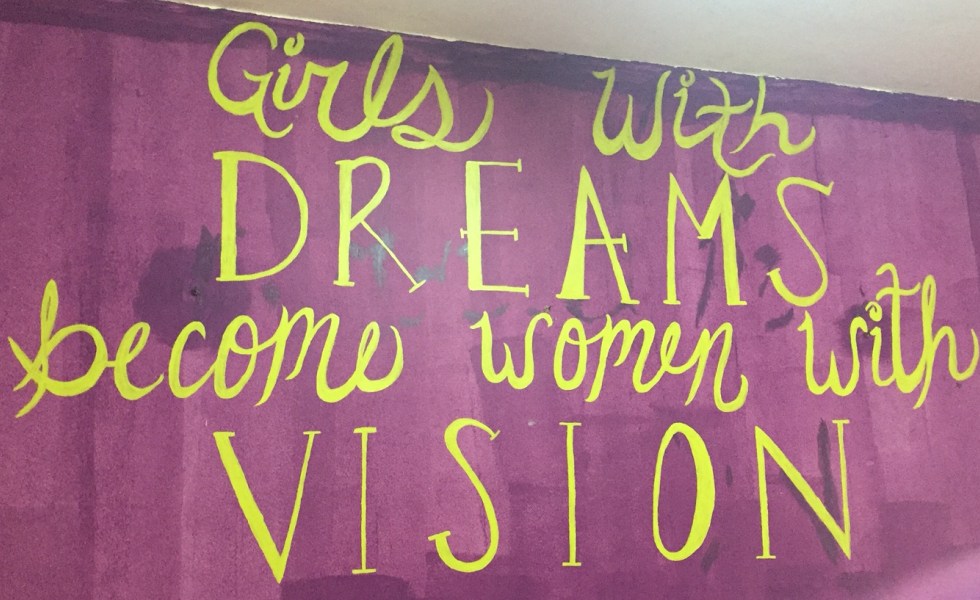 Girls with
DREAMS
become women with
VISION